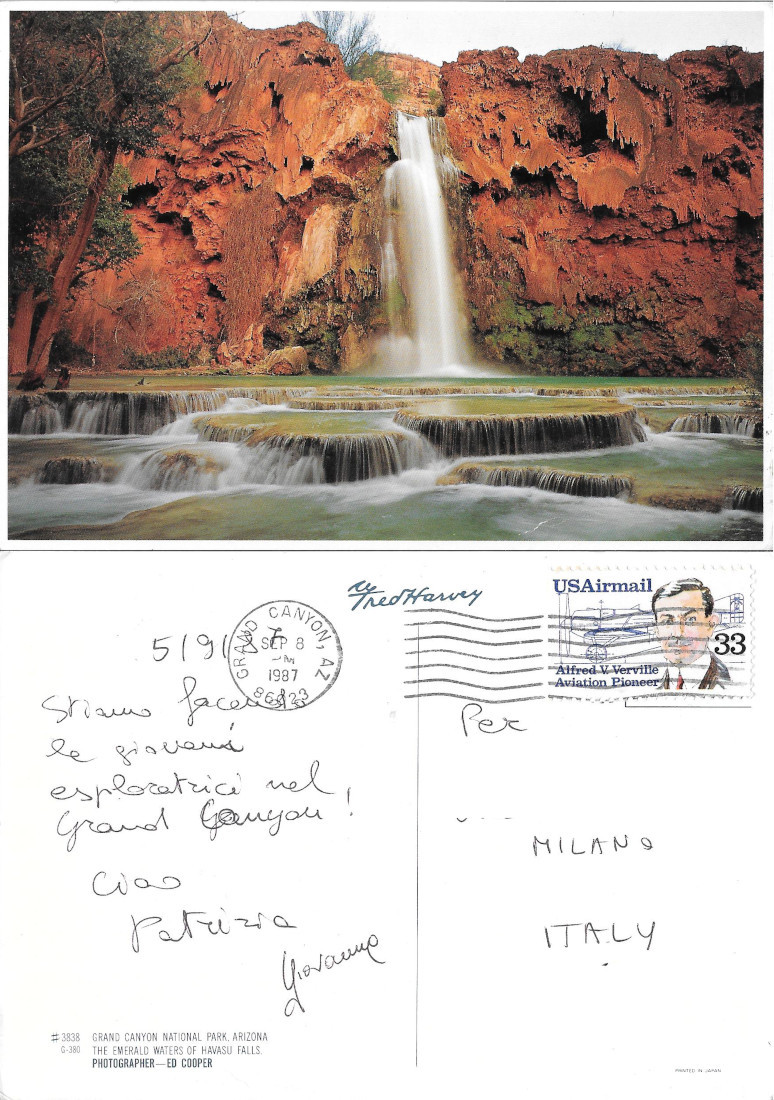 Fred Harvey
GRAND CANYON, AZ
SEP 8
1987
86023
USAirmail
33
Alfred V. Verville
Aviation Pioneer
5/9/87
Stiamo facendo
le giovani
esploratrici nel
Grand Canyon!
Ciao
Patrizia
Giovanna
Per
MILANO
ITALY
#3838 GRAND CANYON NATIONAL PARK, ARIZONA
G-380 THE EMERALD WATERS OF HAVASU FALLS.
PHOTOGRAPHER—ED COOPER
PRINTED IN JAPAN